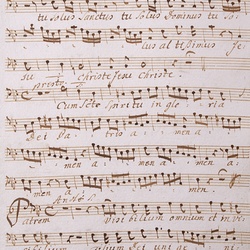 tu solus Sanctus tu solus Dominus tu so
lus altissimus Je
su Christe Jesu Christe.
Cum Scto Spiritu in gloria
Dei Patris a men a
men a men a men a
men a men.
Patrem Visibilium omnium et in vi
sibilium